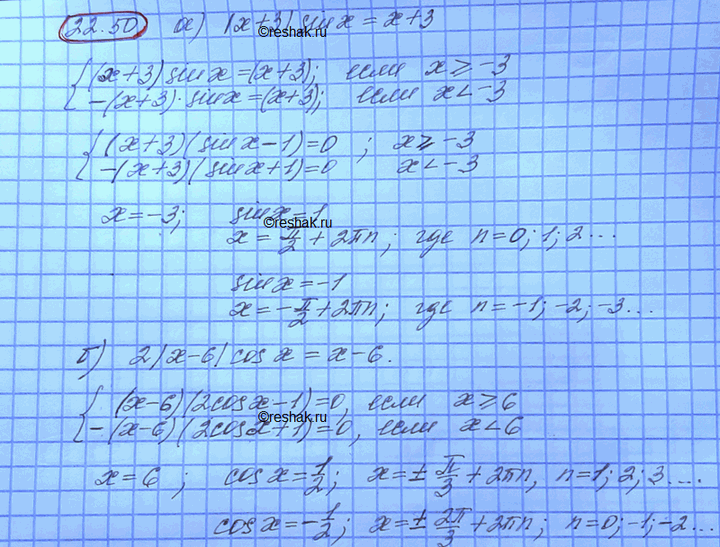 22.50 а) |x+3| sin x = x+3
©reshak.ru
(x+3) sin x = (x+3); если x ≥ -3
-(x+3)·sin x = (x+3); если x < -3
(x+3)(sin x - 1) = 0 ; x ≥ -3
-(x+3)(sin x + 1) = 0 x < -3
x = -3; sin x = 1
©reshak.ru
x = π/2 + 2πn; где n = 0; 1; 2 ...
sin x = -1
x = -π/2 + 2πn; где n = -1; -2; -3 ...
б) 2|x-6| cos x = x-6.
(x-6)(2cos x - 1) = 0, если x ≥ 6
©reshak.ru
-(x-6)(2cos x + 1) = 0, если x < 6
x = 6 ; cos x = 1/2; x = ± π/3 + 2πn, n = 1; 2; 3 ....
cos x = -1/2; x = ± 2π/3 + 2πn; n = 0; -1; -2 ...